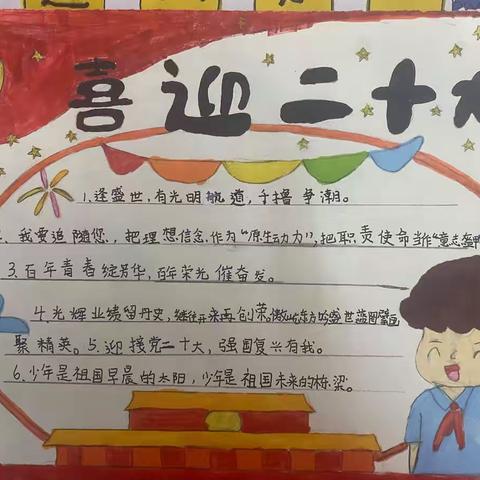 喜迎二十大
1.逢盛世,有光明航道,千撸争潮。
、我要追随您,把理想信念作为“原生动力”,把职责使命当作“意志盔甲
3.百年青春绽芳华,百年荣光催奋发。
4.光辉业绩留丹史,继往开来再创荣。傲屹东方 盛世蓝图
聚精英。5.迎接党二十大,强国复兴有我。
6.少年是祖国早晨的太阳,少年是祖国未来的栋梁。